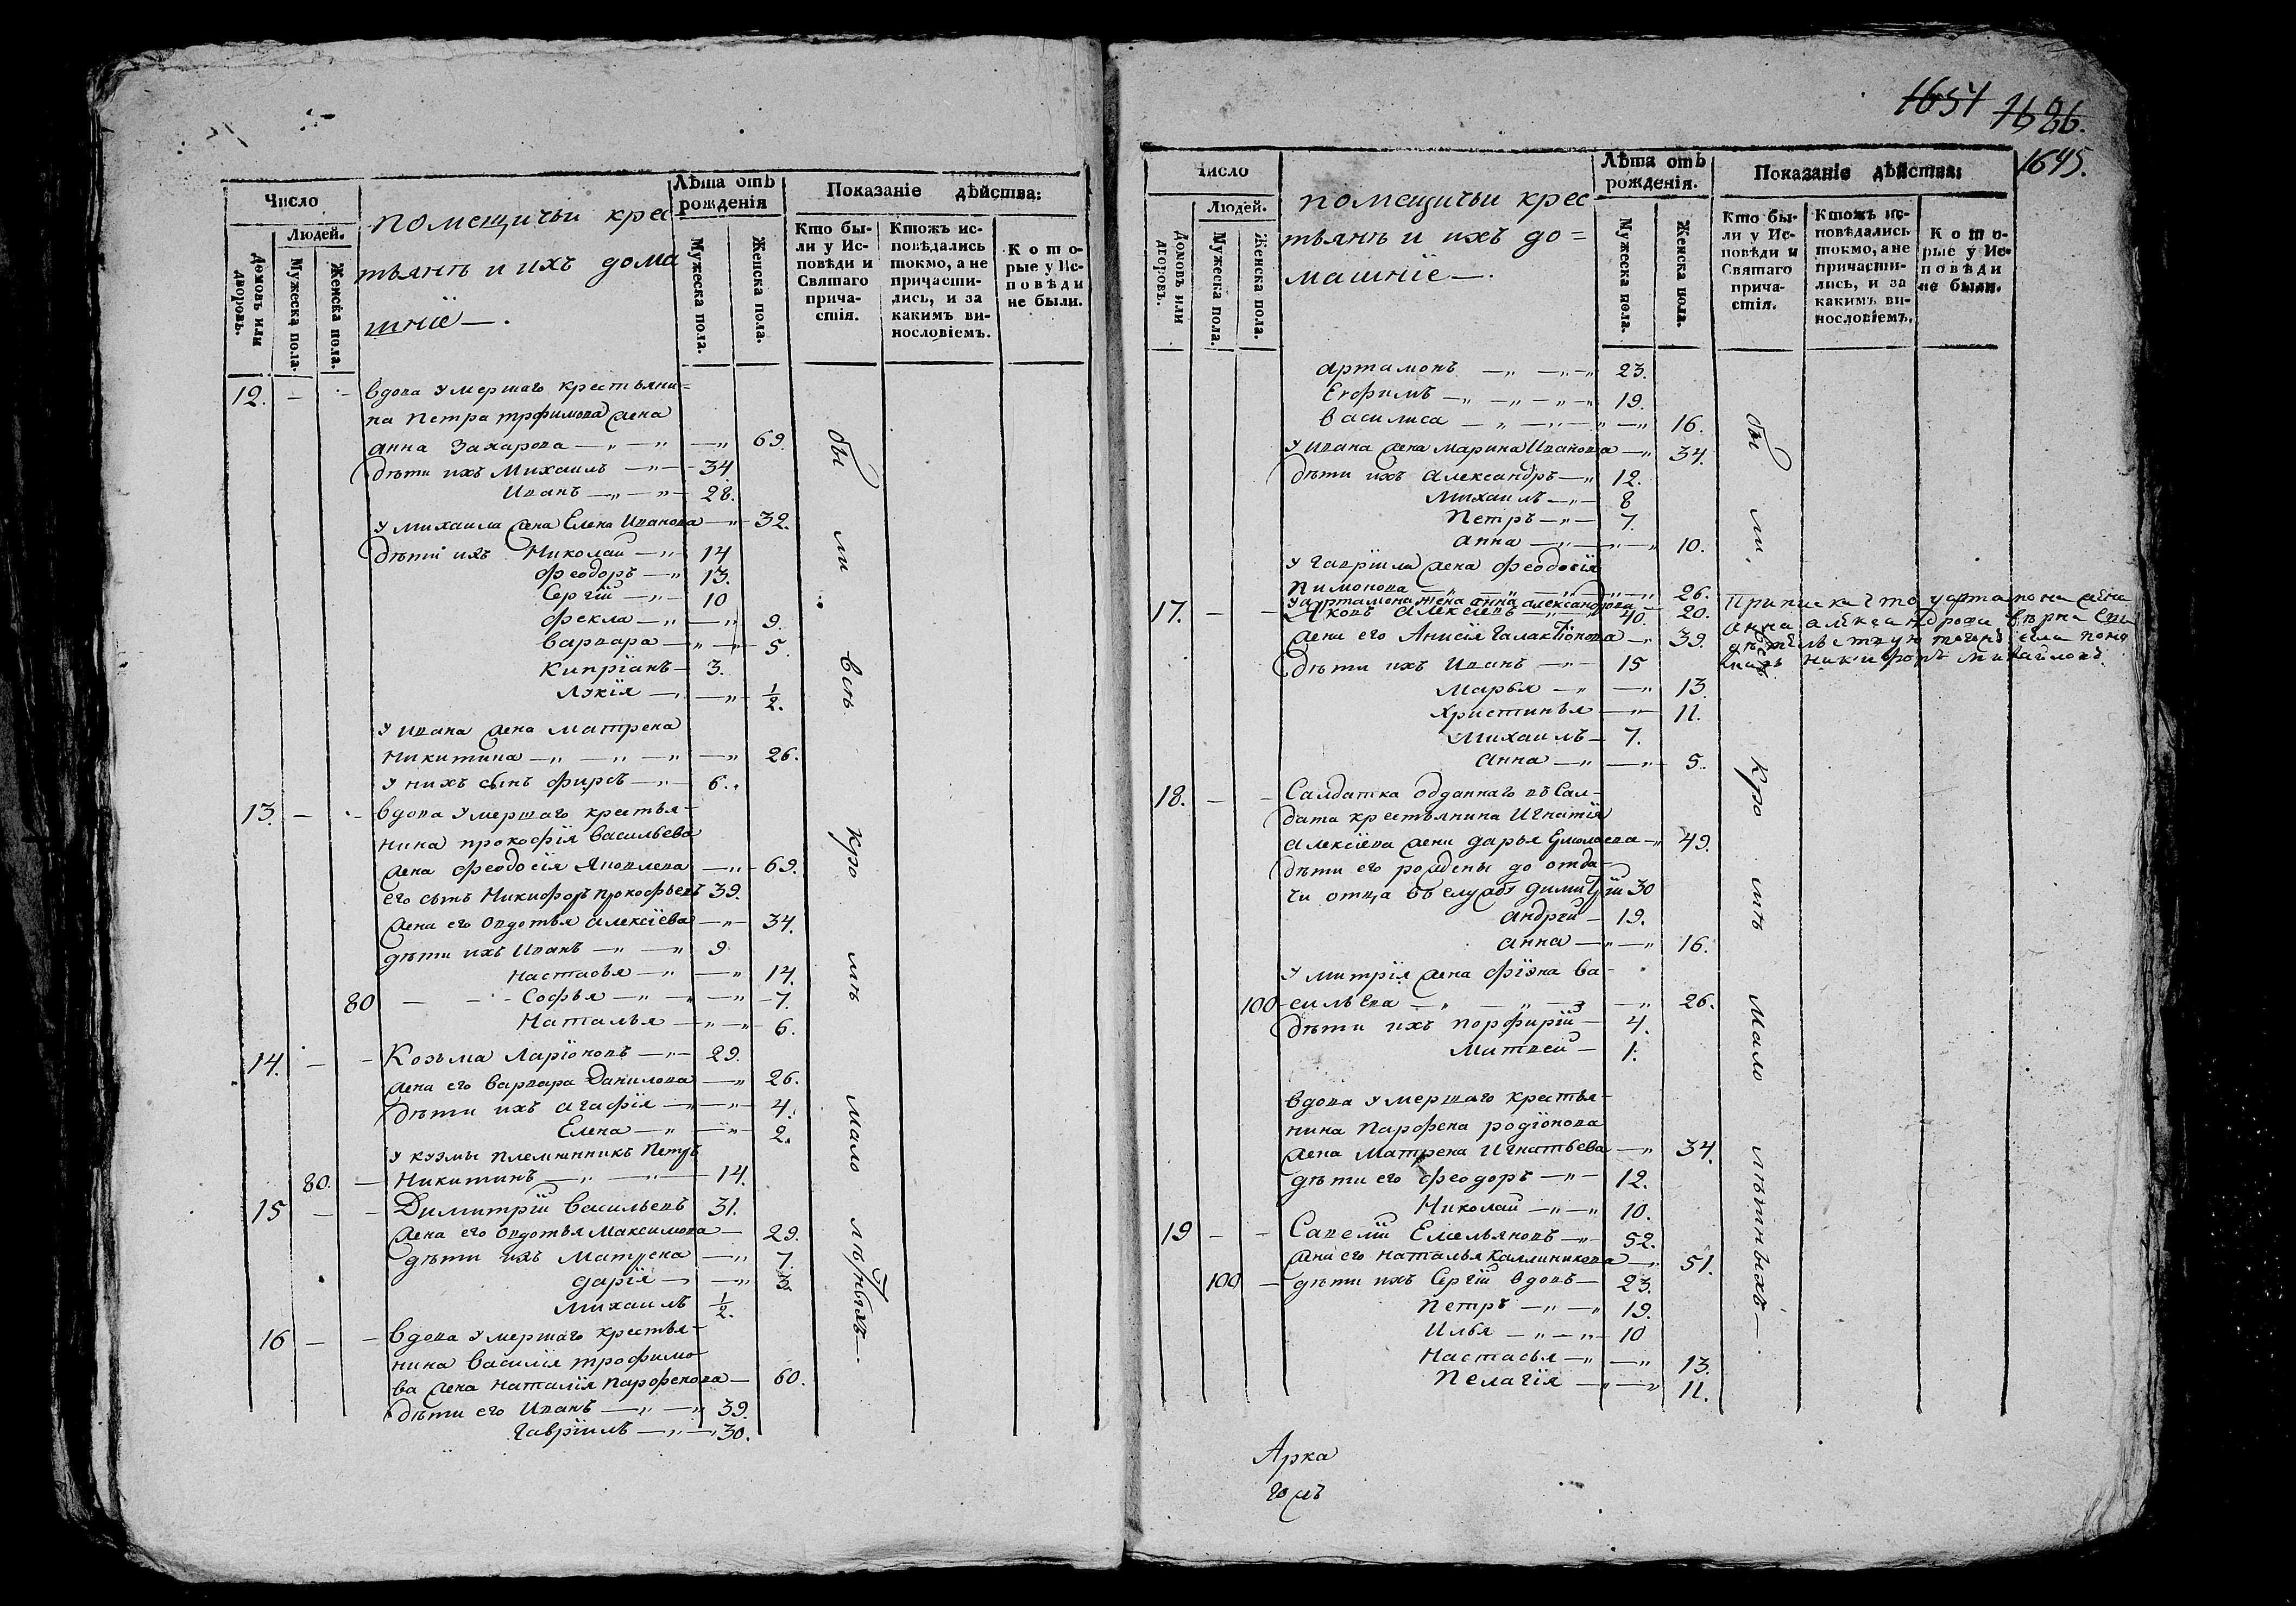 Число
Людей.
Домовъ или дворовъ.
Мужеска пола.
Женска пола.
помещичьи крес
тьянъ и ихъ дома
шніе —.
Лѣта отъ рожденія
Мужеска пола.
Женска пола.
Показаніе дѣйства:
Кто были у Исповѣди и Святаго причастія.
Ктожъ исповѣдались токмо, а не причастились, и за какимъ винословіемъ.
Которые у Исповѣди не были.
12. — - вдова умершаго крестьяни=
на Петра трофимова жена
анна Захарова — 69.
дѣти ихъ Михаилъ — 34
Иванъ — 28.
у михаила жена Елена Иванова — 32.
дѣти ихъ Николай — 14
феодоръ — 13.
Сергій — 10
фекла — 9.
варвара — 5
Кипріанъ — 3.
Лукія — 1/2.
у ивана жена матрена
Никитина — 26.
у нихъ сынъ фирсъ — 6.
13. — - вдова умершаго крестья-
нина прокофія Васильева
жена феодосія Яковлева — 69.
его сынъ Никифоръ прокофьевъ 39.
жена его овдотья алексіева — 34.
дѣти ихъ Иванъ — 9
Настасья — 14.
80 — - Софья — 7.
Наталья — 6.
14. — - Козьма Ларіоновъ — 29.
жена его варвара Данилова — 26.
дѣти ихъ агафія — 4.
Елена — 2.
у кузмы племянникъ Петръ
80. — Никитинъ — 14.
15 — - Димитрій Васильевъ 31.
жена его овдотья Максимова — 29.
дѣти ихъ Матрена — 7.
дарія — 3.
михаилъ 1/2.
16 — - вдова умершаго крестья-
нина Василія трофимо
ва жена Наталія парфенова — 60.
дѣти его Иванъ — 39.
гавріилъ — 30.
бы ли всѣ кро мѣ мало лѣтныхъ —.
1651 1686.
1645.
Число
Людей.
Домовъ или дворовъ.
Мужеска пола.
Женска пола.
помещичьи крес
тьянъ и ихъ до=
машніе —.
Лѣта отъ рожденія.
Мужеска пола.
Женска пола.
Показаніе дѣйства:
Кто были у Исповѣди и Святаго причастія.
Ктожъ исповѣдались токмо, а не причастились, и за какимъ винословіемъ.
Которые у Исповѣди не были.
артамонъ — 23.
Ефимъ — 19.
василиса — 16.
у ивана жена марина Иванова — 34.
дѣти ихъ александръ — 12.
михаилъ — 8
Петръ — 7.
анна — 10.
у гавріила жена феодосія
Пимонова — 26.
у артамона жена анна александрова — 20.
17. — - Яковъ алексіевъ — 40.
жена его Анисія Галактіонова — 39.
дѣти ихъ Иванъ — 15
марья — 13
Христинья — 11.
михаилъ — 7.
анна — 5.
18. — - Салдатка отданнаго въ Сал-
дата крестьянина Игнатія
алексіева жена дарья Ермолаева — 49.
дѣти его рождены до отда-
чи отца въ службу димитрій 30
андрей — 19.
анна — 16.
у митрія жена фіона ва-
100 - сильева — 26.
дѣти ихъ порфирій — 4.
матвей — 1.
вдова умершаго крестья-
нина Парфена родіонова
жена матрена Игнатьева — 34.
дѣти его феодоръ — 12.
Николай — 10.
19 — - Савелій Емельяновъ — 52.
жена его наталья Каллиникова — 51.
100 — дѣти ихъ Сергій вдовъ — 23.
Петръ — 19.
Илья — 10
Настасья — 13.
Пелагія — 11.
приписка что у артамона жена
анна александрова вѣрна
никифоръ михайловъ.
бы ли всѣ кро мѣ мало лѣтныхъ —.
Арка